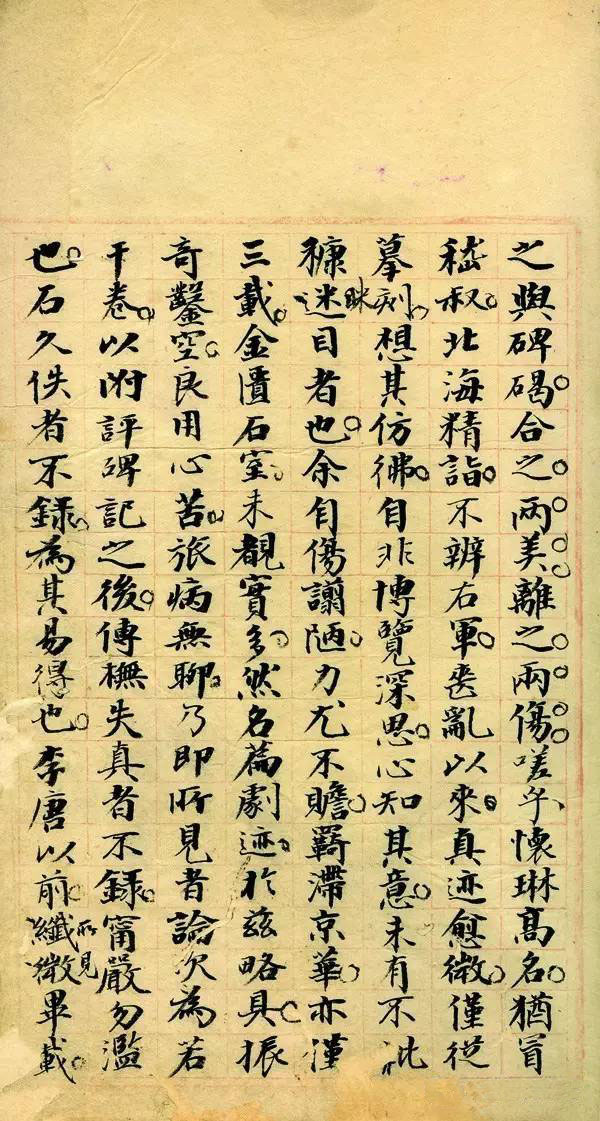 之與碑碣合之兩美離之兩傷嗟乎懷琳高名猶冒
嵇叔北海精詣不辨右軍喪亂以來真迹愈微僅從
摹刻想其仿彿自非博覽深思心知其意未有不玭
穅迷眯目者也余自傷謭陋力尤不贍羇滯京華亦僅
三載金匱石室未覩實多然名篇劇迹於茲略具振
奇鑿空良用心苦旅病無聊乃即所見者論次為若
干卷以附評碑記之後傳橅失真者不錄甯嚴勿濫
也石久佚者不錄為其易得也李唐以前纖微所見畢載